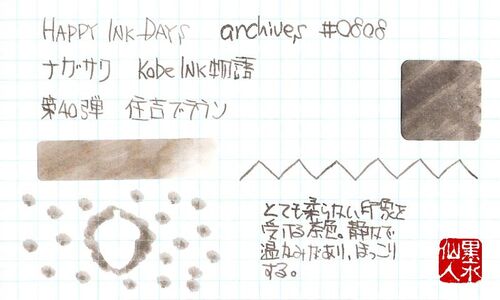 HAPPY INK-DAYS archives #0808
ナガサワ Kobe INK物語
第40弾 住吉ブラウン
とても柔らない印象を
受ける茶色。静かで
温かみがあり、ほっこり
する。
墨水
仙人